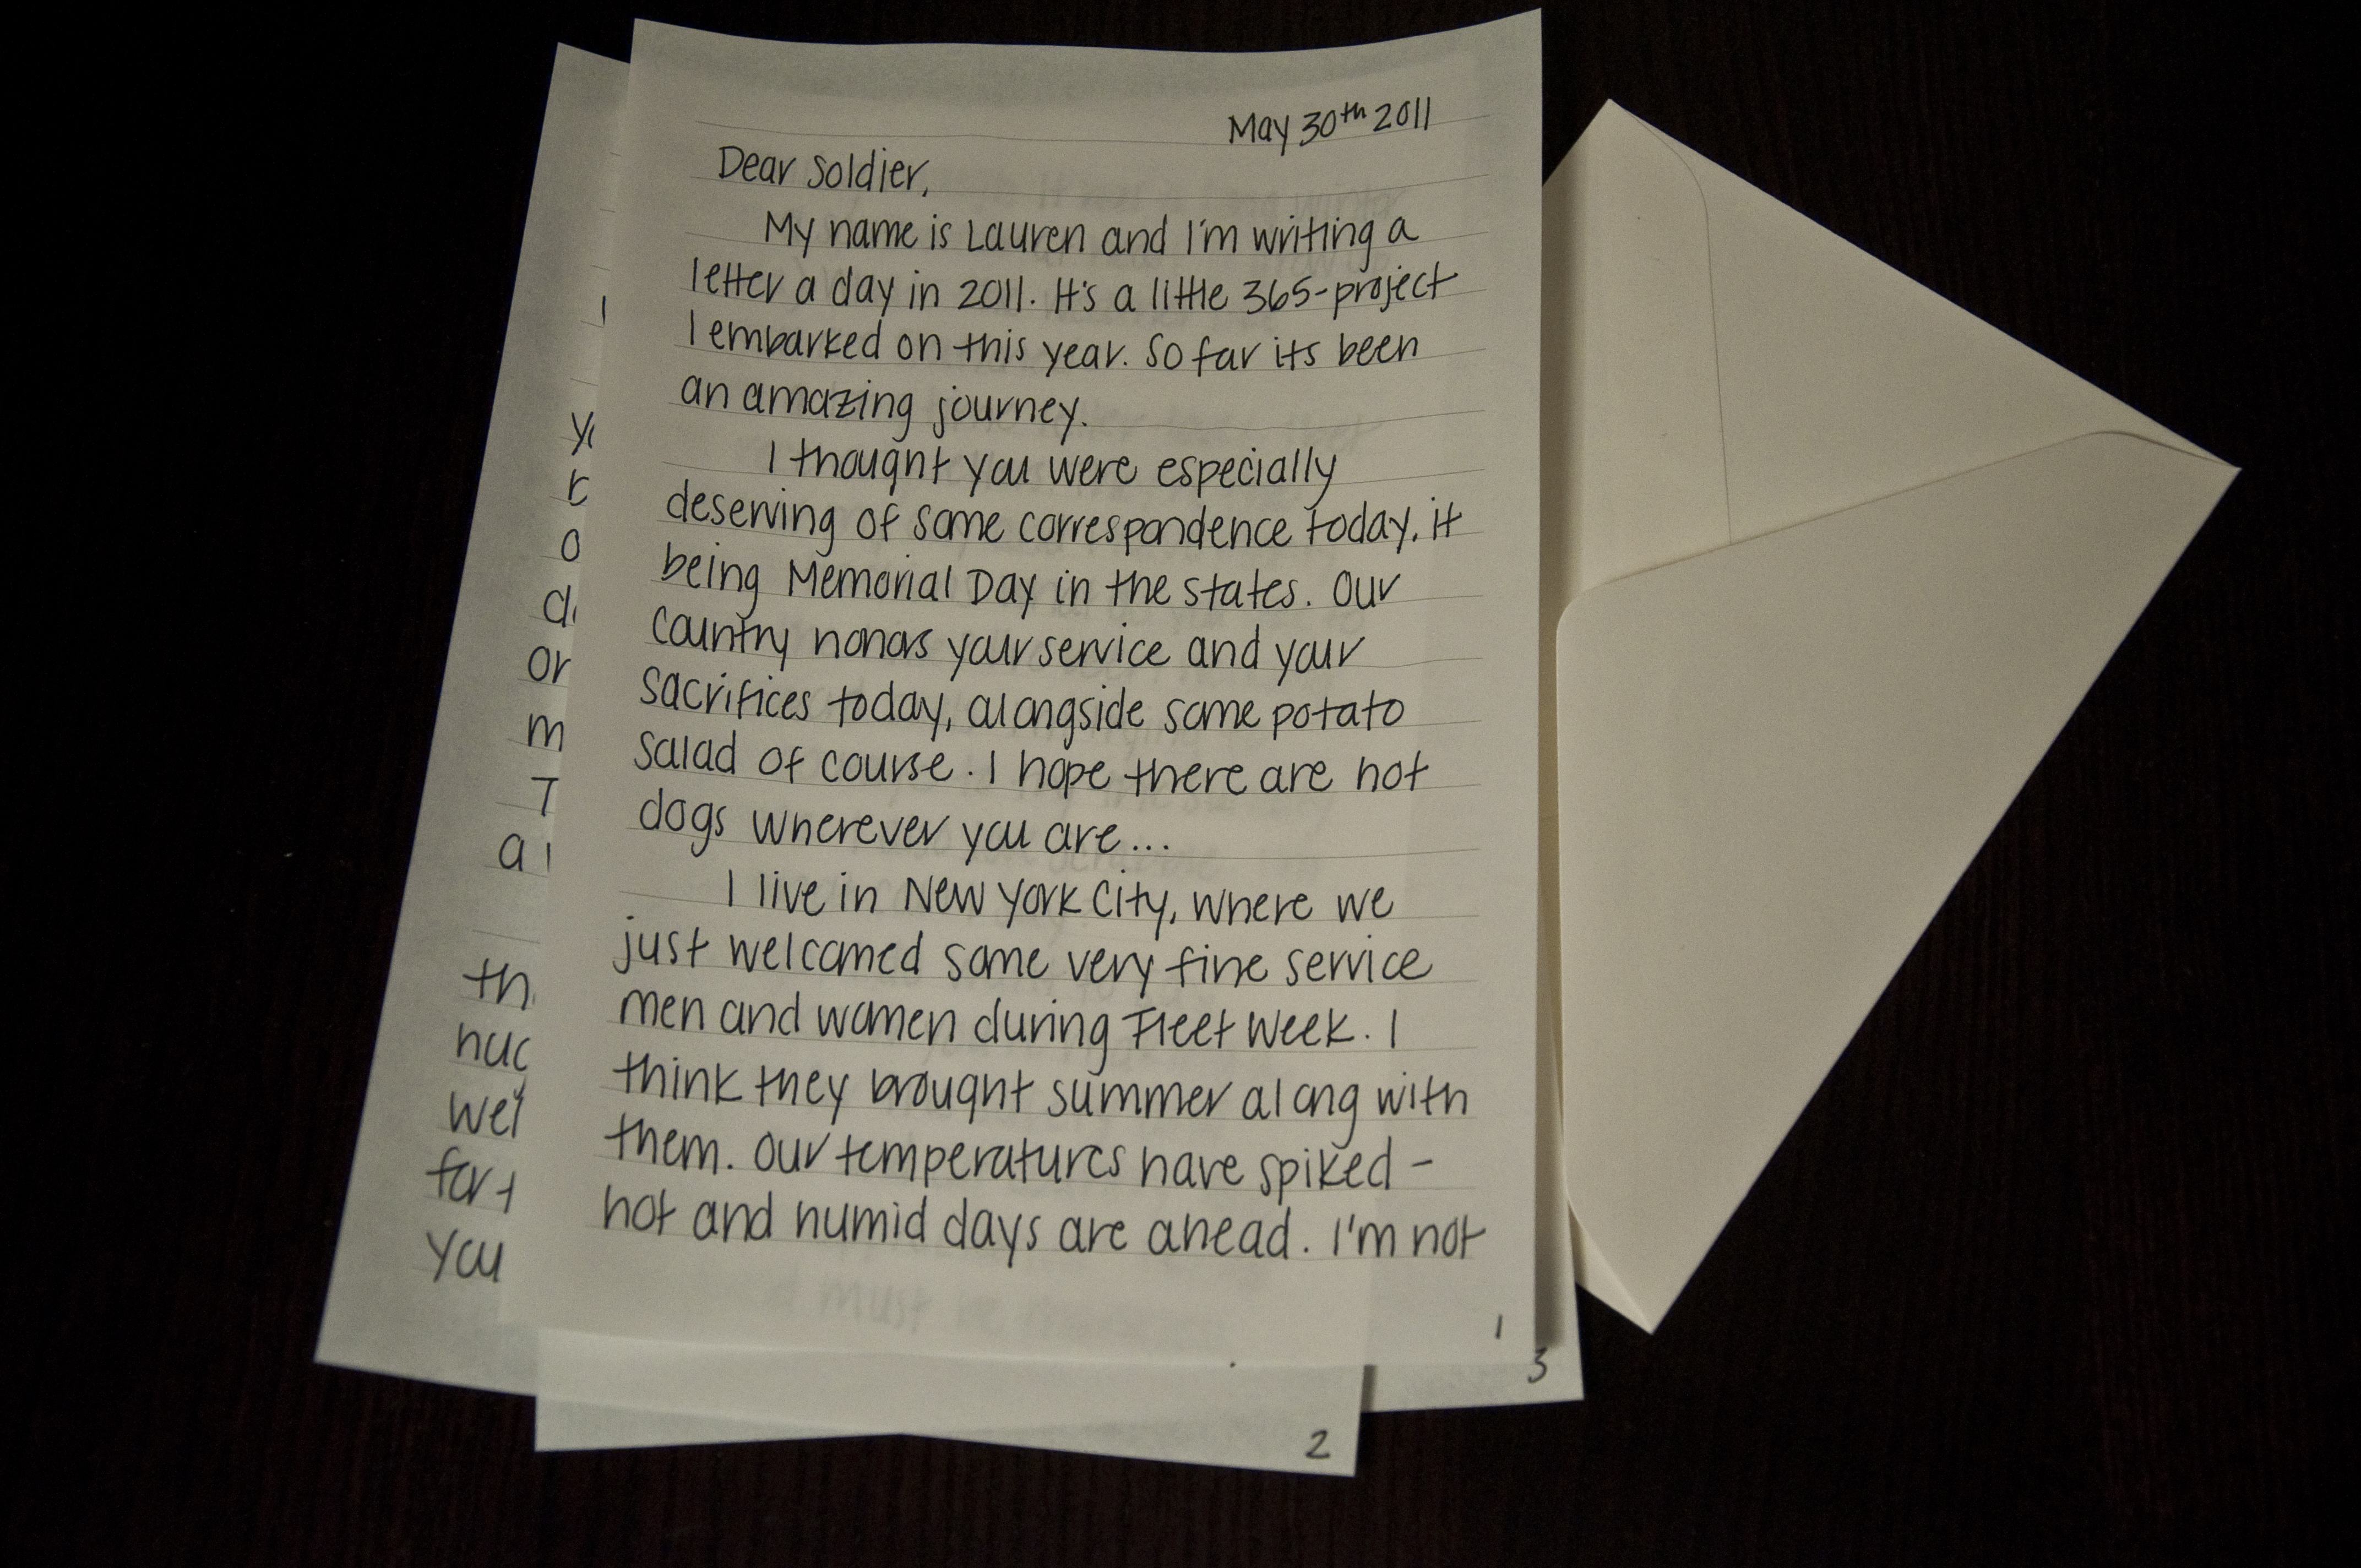 May 30th 2011
Dear Soldier,
My name is Lauren and I'm writing a
letter a day in 2011. It's a little 365-project
I embarked on this year. So far its been
an amazing journey.
I thought you were especially
deserving of some correspondence today, it
being Memorial Day in the states. Our
country honors your service and your
sacrifices today, alongside some potato
salad of course. I hope there are hot
dogs wherever you are...
I live in New York City, where we
just welcomed some very fine service
men and women during Fleet Week. I
think they brought summer along with
them. Our temperatures have spiked -
hot and humid days are ahead. I'm not
1
3
2
or
m
T
a
th
wei
for t
you